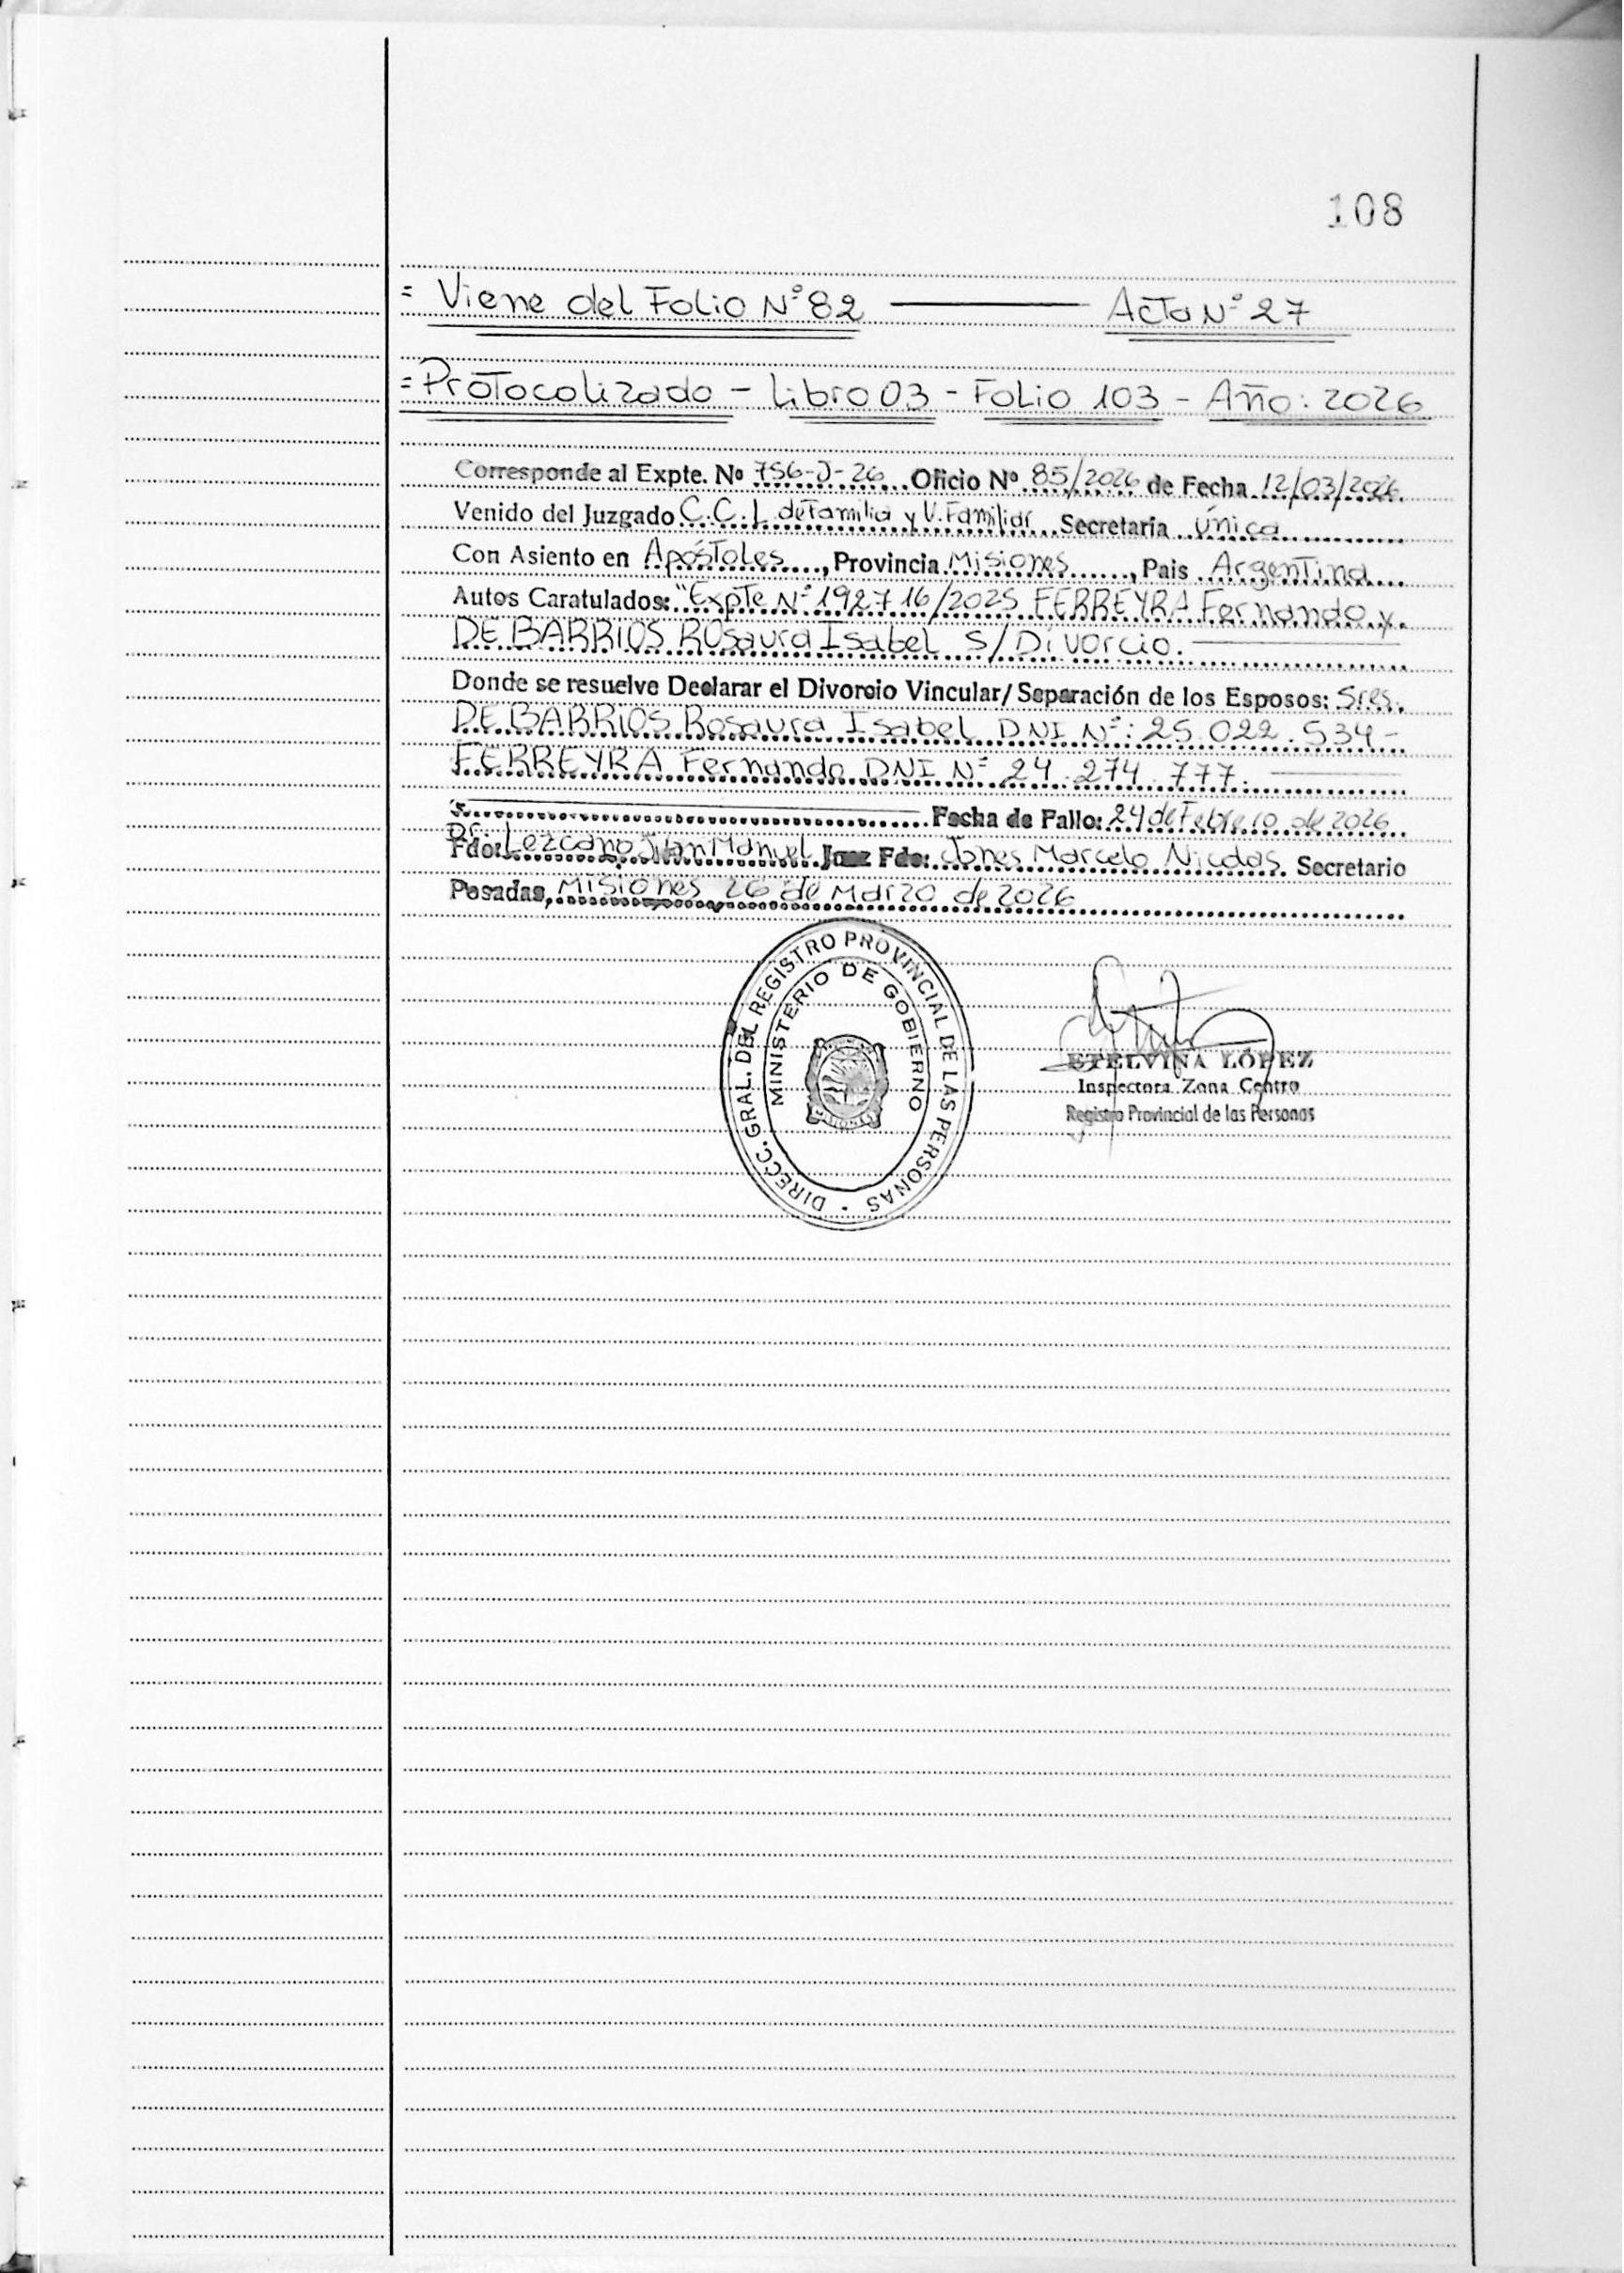 108
= Viene del Folio N° 82 ——— Acta N° 27
= Protocolizado - Libro 03 - Folio 103 - Año: 2026
Corresponde al Expte. Nº 756-J-26 Oficio Nº 85/2026 de Fecha 12/03/2026
Venido del Juzgado C.C.L. de Familia y V. Familiar Secretaría Única
Con Asiento en Apóstoles, Provincia Misiones, Pais Argentina
Autos Caratulados: "Expte N° 192716/2025 FERREYRA Fernando y
DE BARRIOS Rosaura Isabel S/Divorcio.
Donde se resuelve Declarar el Divorcio Vincular/Separación de los Esposos: Sres.
DE BARRIOS Rosaura Isabel DNI N°: 25.022.534-
FERREYRA Fernando DNI N° 24.274.777.
Fecha de Fallo: 24 de Febrero de 2026
Fdo: Dr. Lezcano Juan Manuel Juez Fdo: Jones Marcelo Nicolas. Secretario
Posadas, Misiones 26 de Marzo de 2026
DIRECC. GRAL. DEL REGISTRO PROVINCIAL DE LAS PERSONAS
MINISTERIO DE GOBIERNO
ETELVINA LÓPEZ
Inspectora Zona Centro
Registro Provincial de las Personas